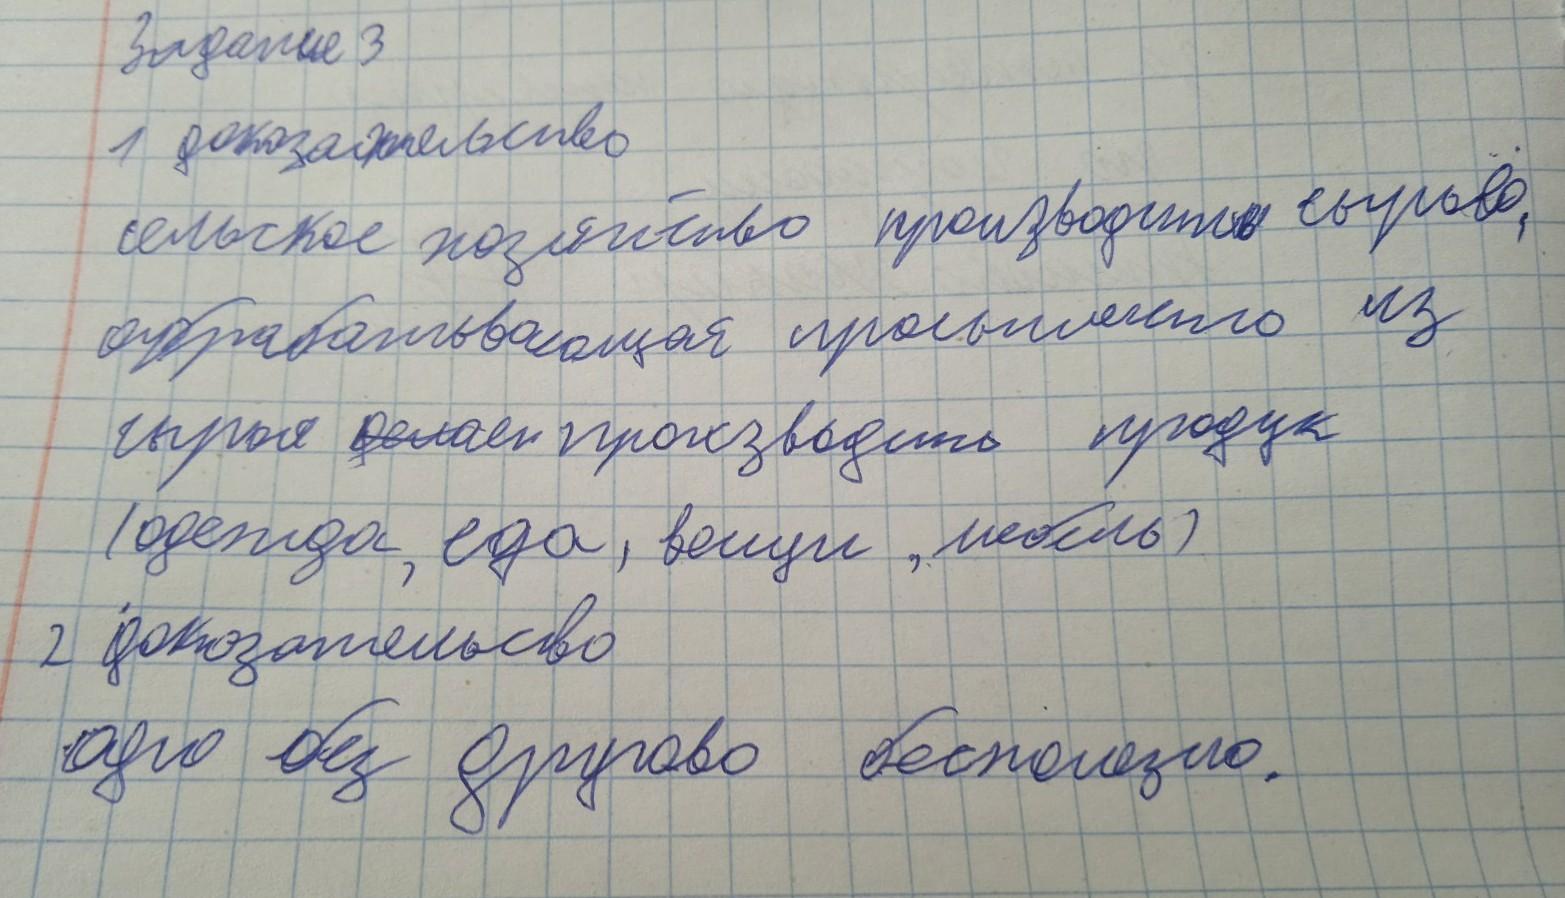 Задание 3
1 доказательство
сельское хозяйство производить сырьё,
обрабатывающая промышлено из
сырья делает производить продук
(одежда, еда, вещи, мебель)
2 доказательсво
одно без другово бесполезно.